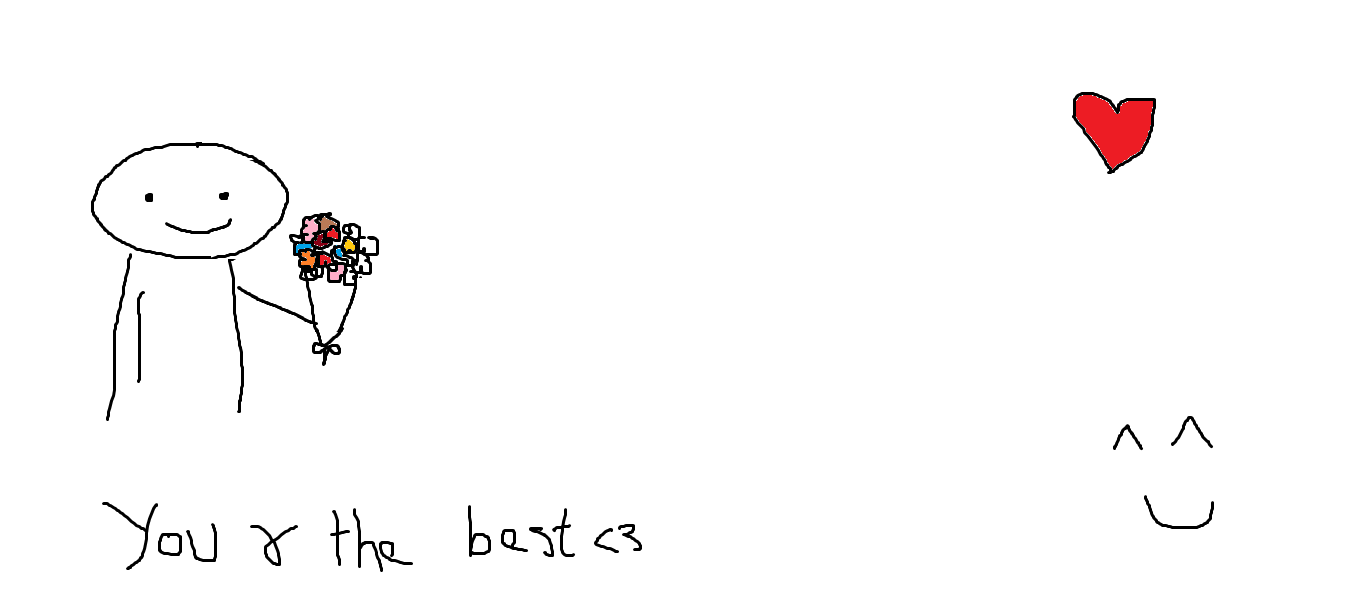 You r the best <3